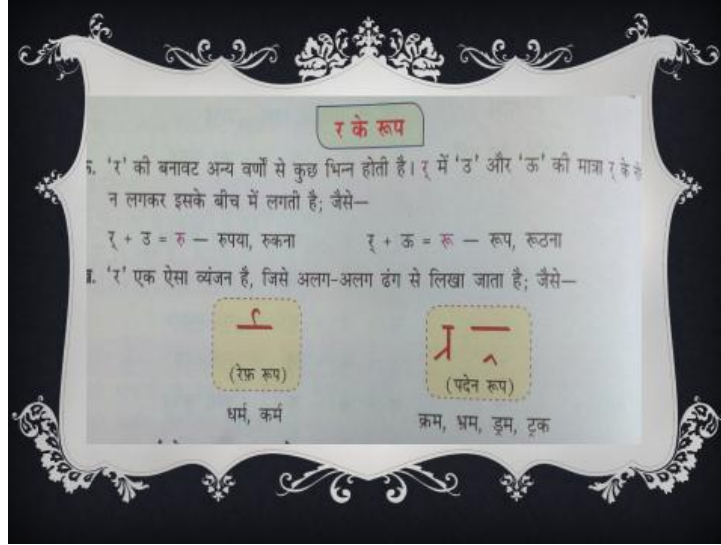 र के रूप
क. 'र' की बनावट अन्य वर्णों से कुछ भिन्न होती है। र् में 'उ' और 'ऊ' की मात्रा र् के
न लगकर इसके बीच में लगती है; जैसे—
र् + उ = रु — रुपया, रुकना र् + ऊ = रू — रूप, रूठना
ख. 'र' एक ऐसा व्यंजन है, जिसे अलग-अलग ढंग से लिखा जाता है; जैसे—
(रेफ़ रूप) (पदेन रूप)
धर्म, कर्म क्रम, भ्रम, ड्रम, ट्रक